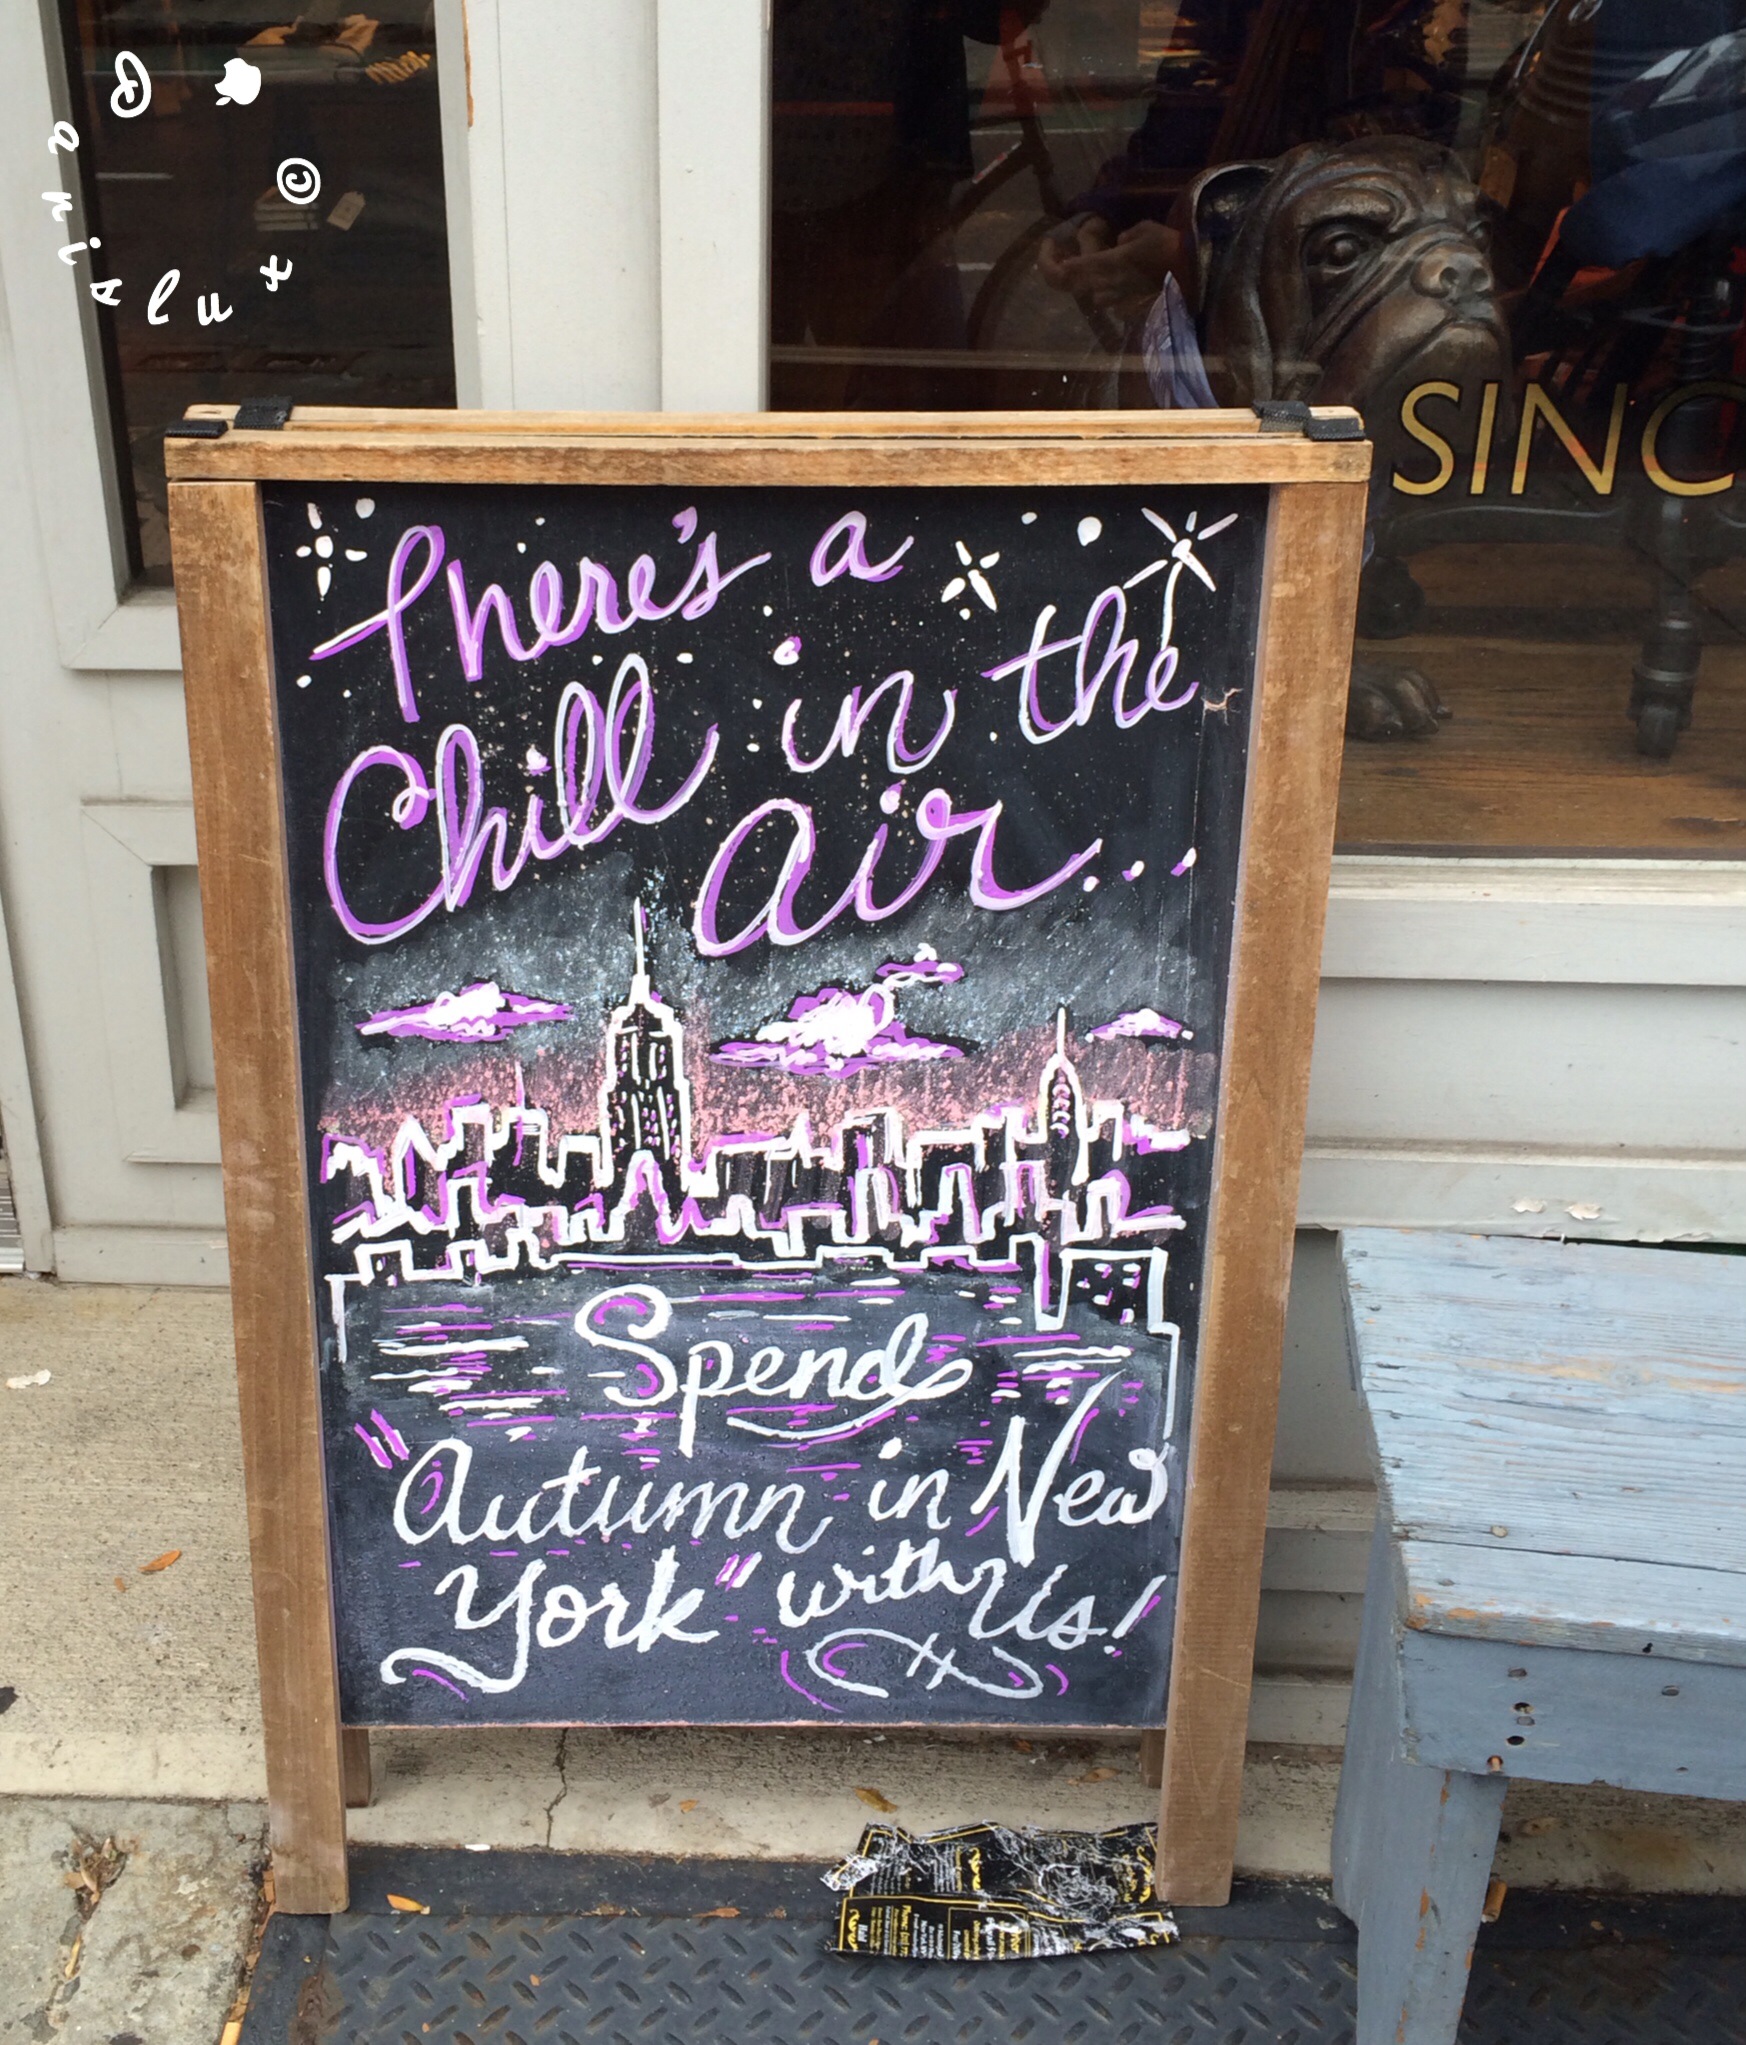 Danislux ©
SINC
There's a
Chill in the
air...
Spend
"Autumn in New
York" with Us!